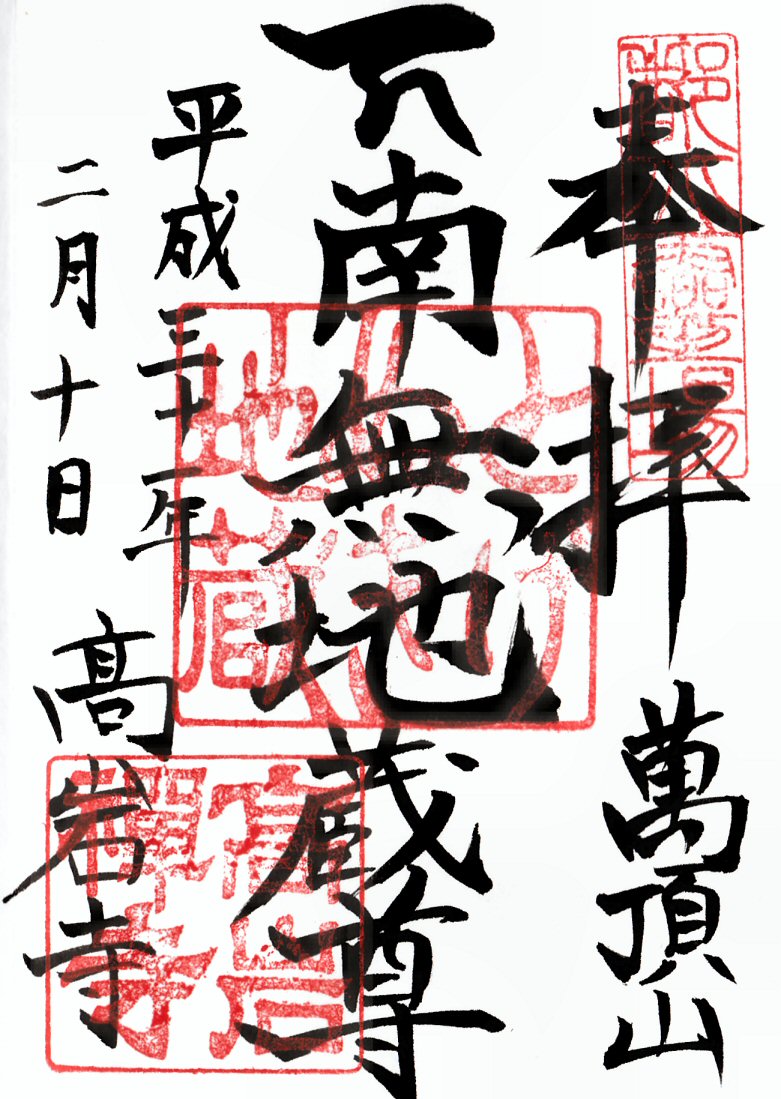 奉拝 萬頂山
南無地蔵尊
平成三十一年
二月十日 高岩寺
地蔵
高岩
禪寺